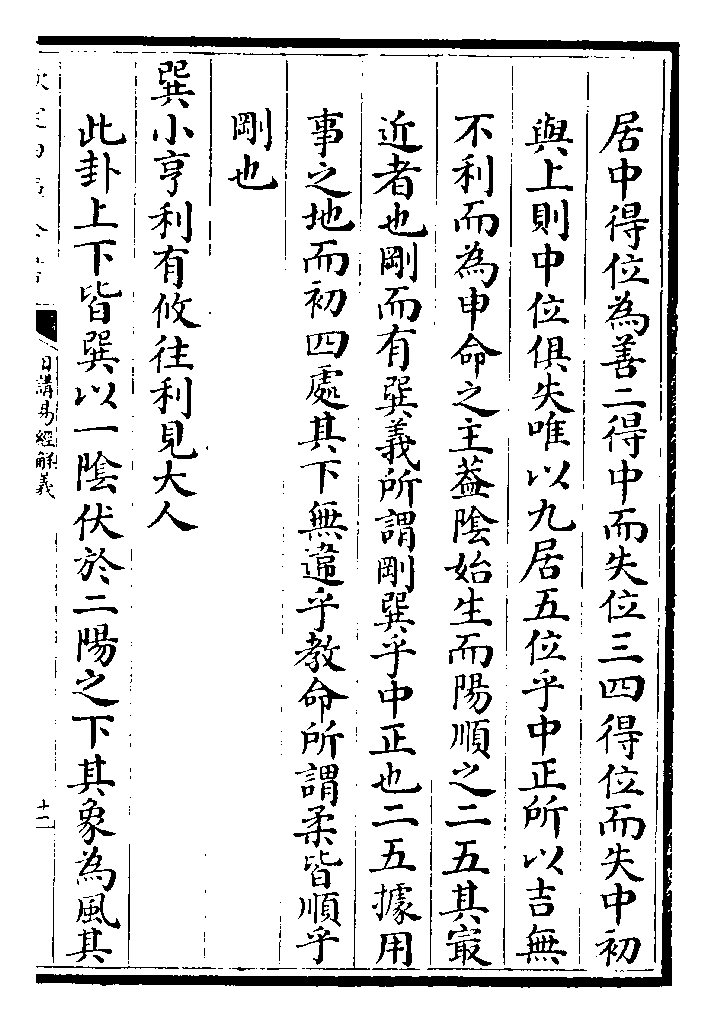 居中得位為善二得中而失位三四得位而失中初
與上則中位俱失唯以九居五位乎中正所以吉無
不利而為申命之主葢陰始生而陽順之二五其最
近者也剛而有巽義所謂剛巽乎中正也二五據用
事之地而初四處其下無違乎教命所謂柔皆順乎
剛也
巽小亨利有攸往利見大人
此卦上下皆巽以一陰伏於二陽之下其象為風其
日講易經解義